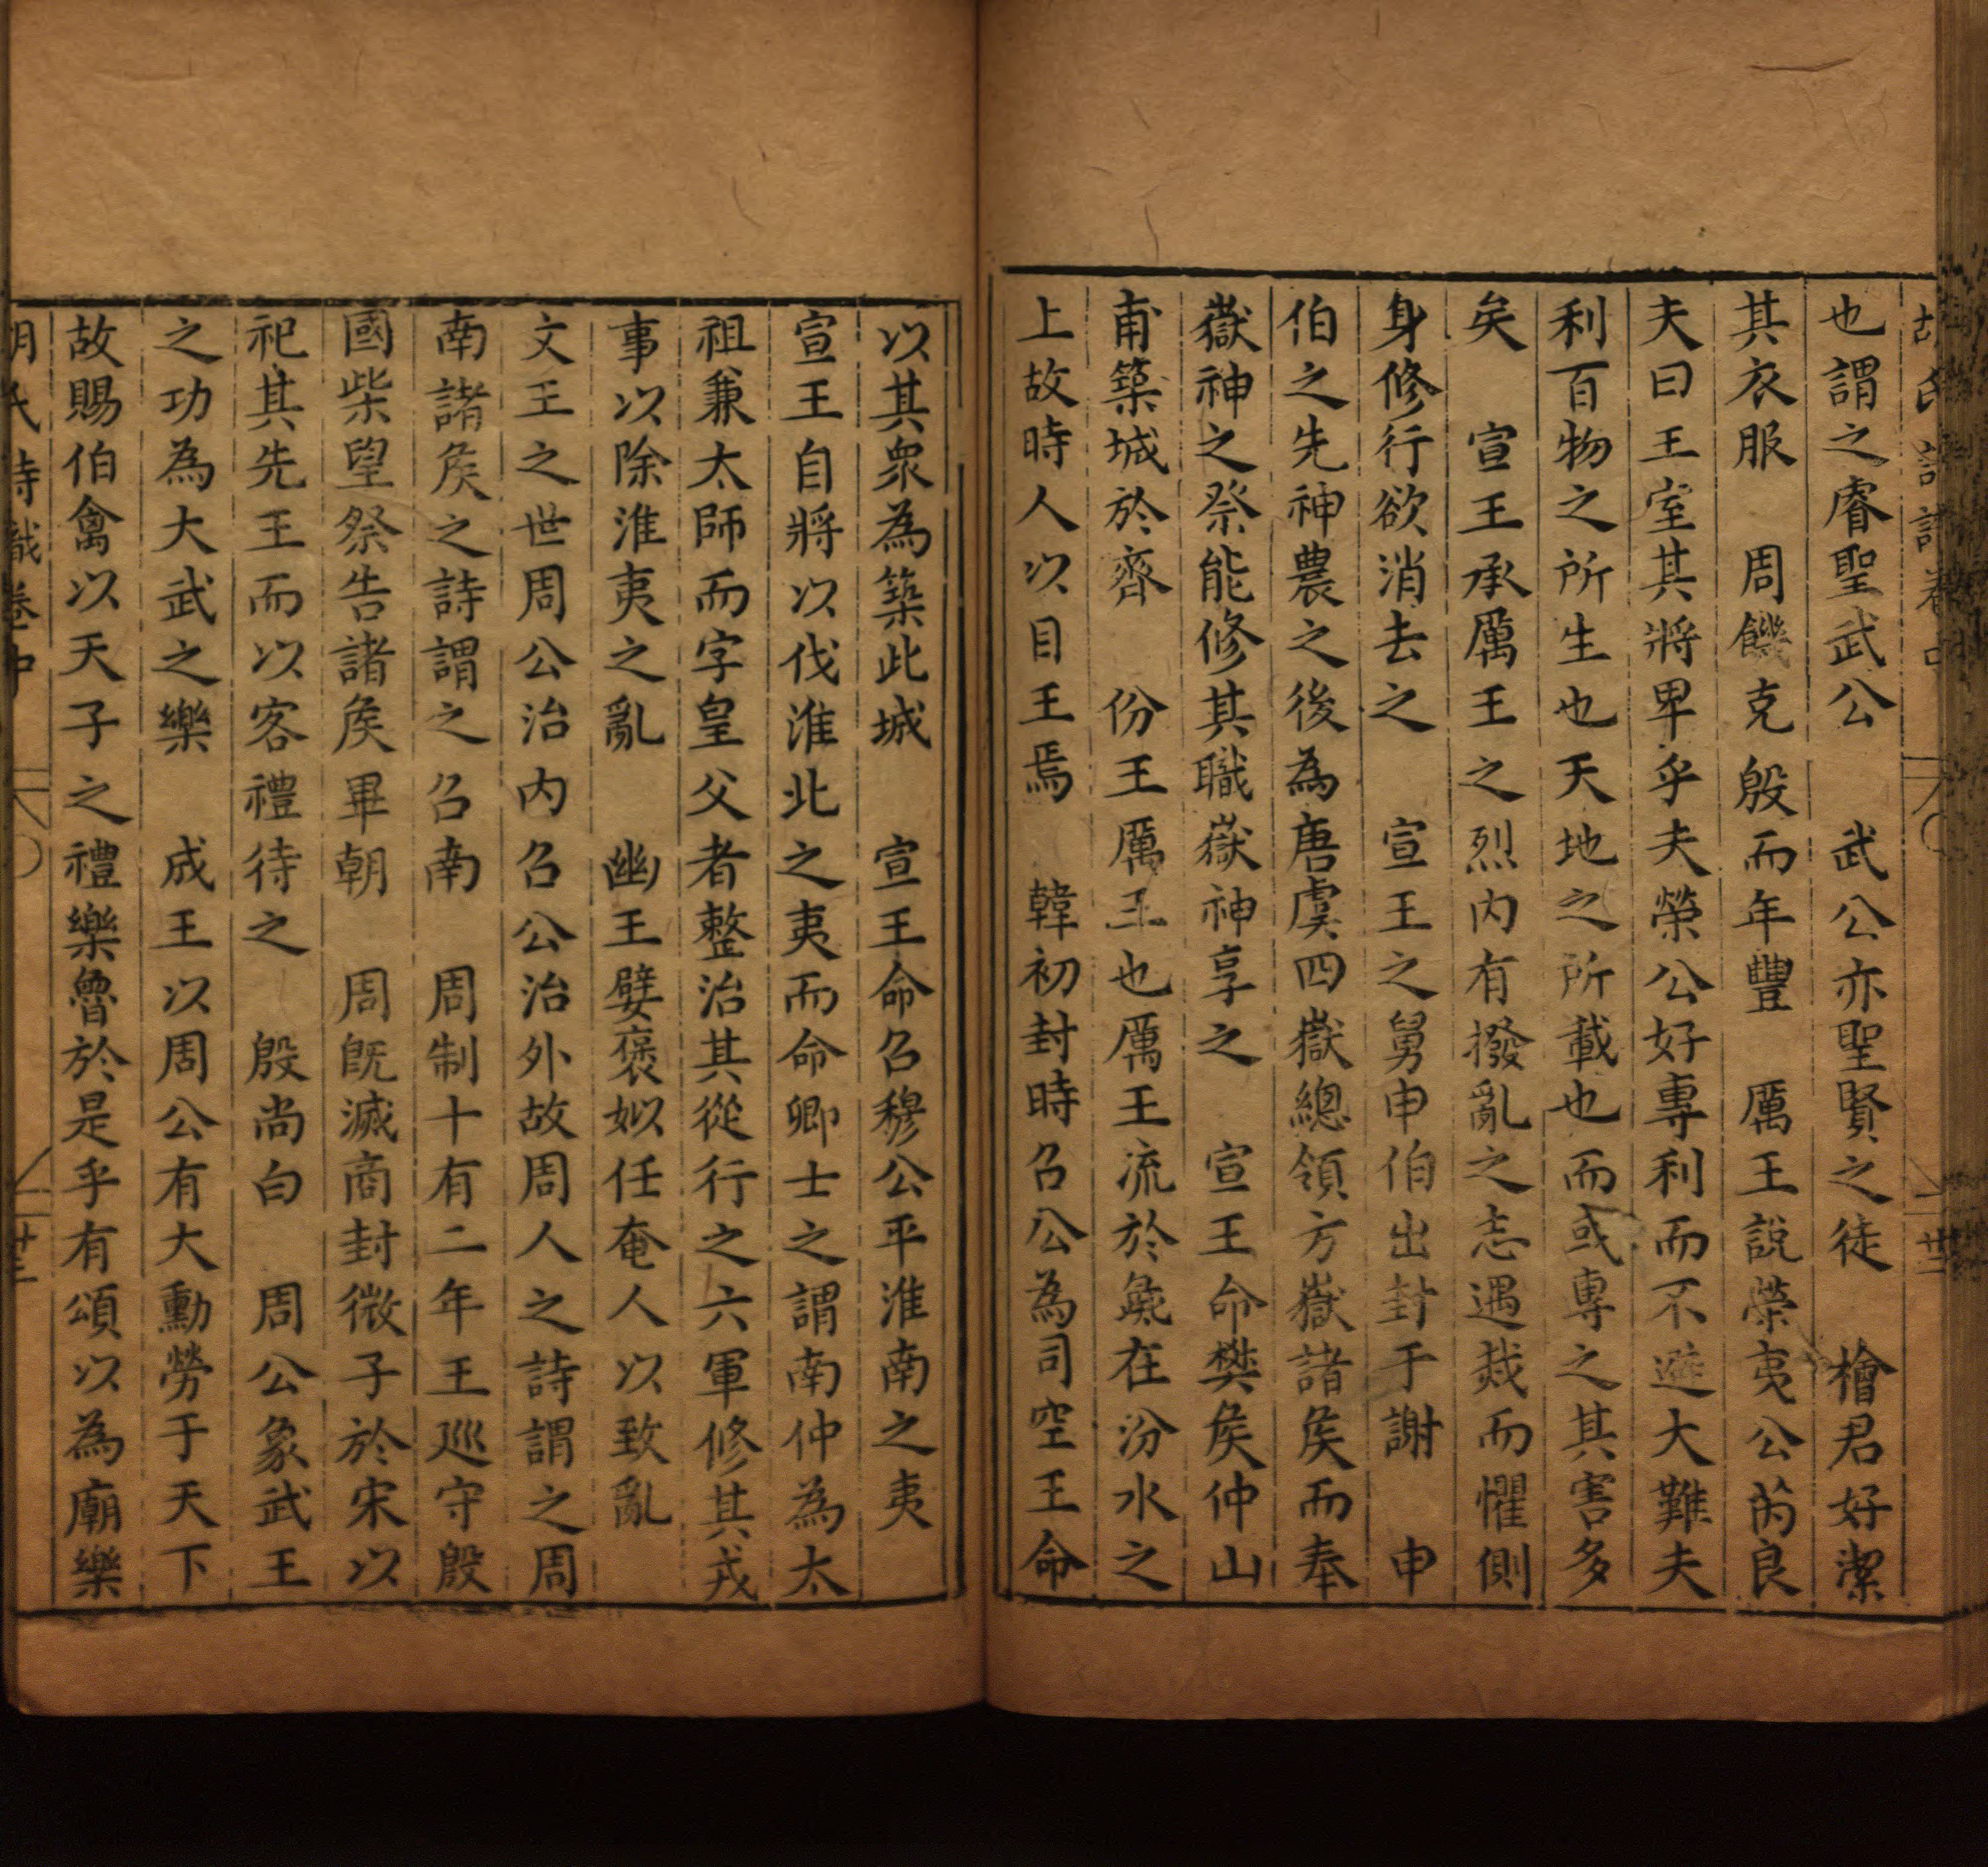 也謂之睿聖武公　武公亦聖賢之徒　檜君好潔
其衣服　周饑克殷而年豐　厲王說榮夷公芮良
夫曰王室其將卑乎夫榮公好專利而不避大難夫
利百物之所生也天地之所載也而或專之其害多
矣　宣王承厲王之烈內有撥亂之志遇烖而懼側
身修行欲消去之　宣王之舅申伯出封于謝　申
伯之先神農之後為唐虞四嶽總領方嶽諸矦而奉
嶽神之祭能修其職嶽神享之　宣王命樊矦仲山
甫築城於齊　份王厲王也厲王流於彘在汾水之
上故時人以目王焉　韓初封時召公為司空王命
以其衆為築此城　宣王命召穆公平淮南之夷
宣王自將以伐淮北之夷而命卿士之謂南仲為太
祖兼太師而字皇父者整治其從行之六軍修其戎
事以除淮夷之亂　幽王嬖褒姒任奄人以致亂
文王之世周公治內召公治外故周人之詩謂之周
南諸矦之詩謂之召南　周制十有二年王巡守殷
國柴望祭告諸矦畢朝　周旣滅商封微子於宋以
祀其先王而以客禮待之　殷尚白　周公象武王
之功為大武之樂　成王以周公有大勳勞于天下
故賜伯禽以天子之禮樂魯於是乎有頌以為廟樂